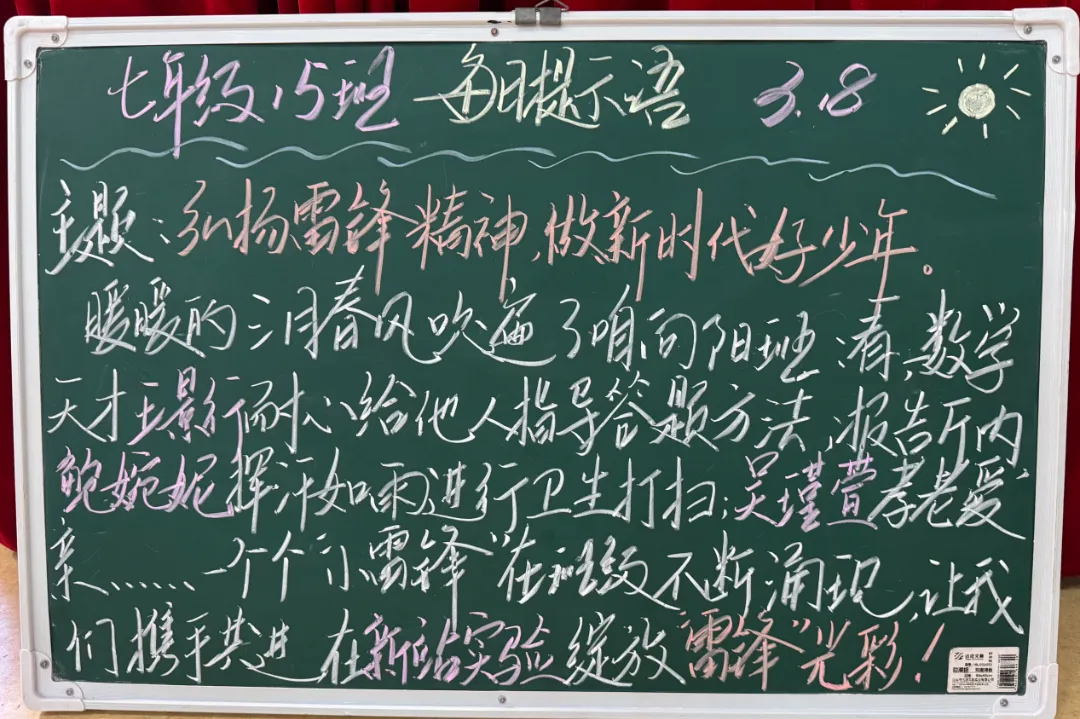 七年级15班 每日提示语 3.8
主题：弘扬雷锋精神，做新时代好少年。
暖暖的三月春风吹遍了咱向阳班，看，数学
天才王影行耐心给他人指导答题方法，报告厅内
鲍婉妮挥汗如雨进行卫生打扫；吴瑾萱孝老爱
亲……一个个“小雷锋”在班级不断涌现，让我
们携手共进 在新站实验绽放“雷锋”光彩！